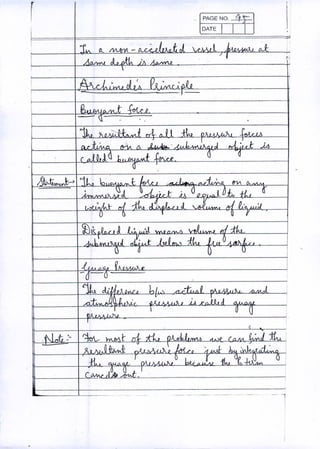 PAGE NO. 95
DATE
In a non-accelerated vessel, pressure at
same depth is same.
Archimede's Principle
Buoyant force.
The resultant of all the pressure forces
acting on a submerged object is
called buoyant force.
Statement:- The buoyant force acting on any
immersed object is equal to the
weight of the displaced volume of liquid.
Displaced liquid means volume of the
submerged object below the free surface.
Guage Pressure
The difference b/w actual pressure and
atmospheric pressure is called guage
pressure.
Note:- For most of the problems we can find the
resultant pressure force just by integrating
the guage pressure because the P₀ term
cancels out.